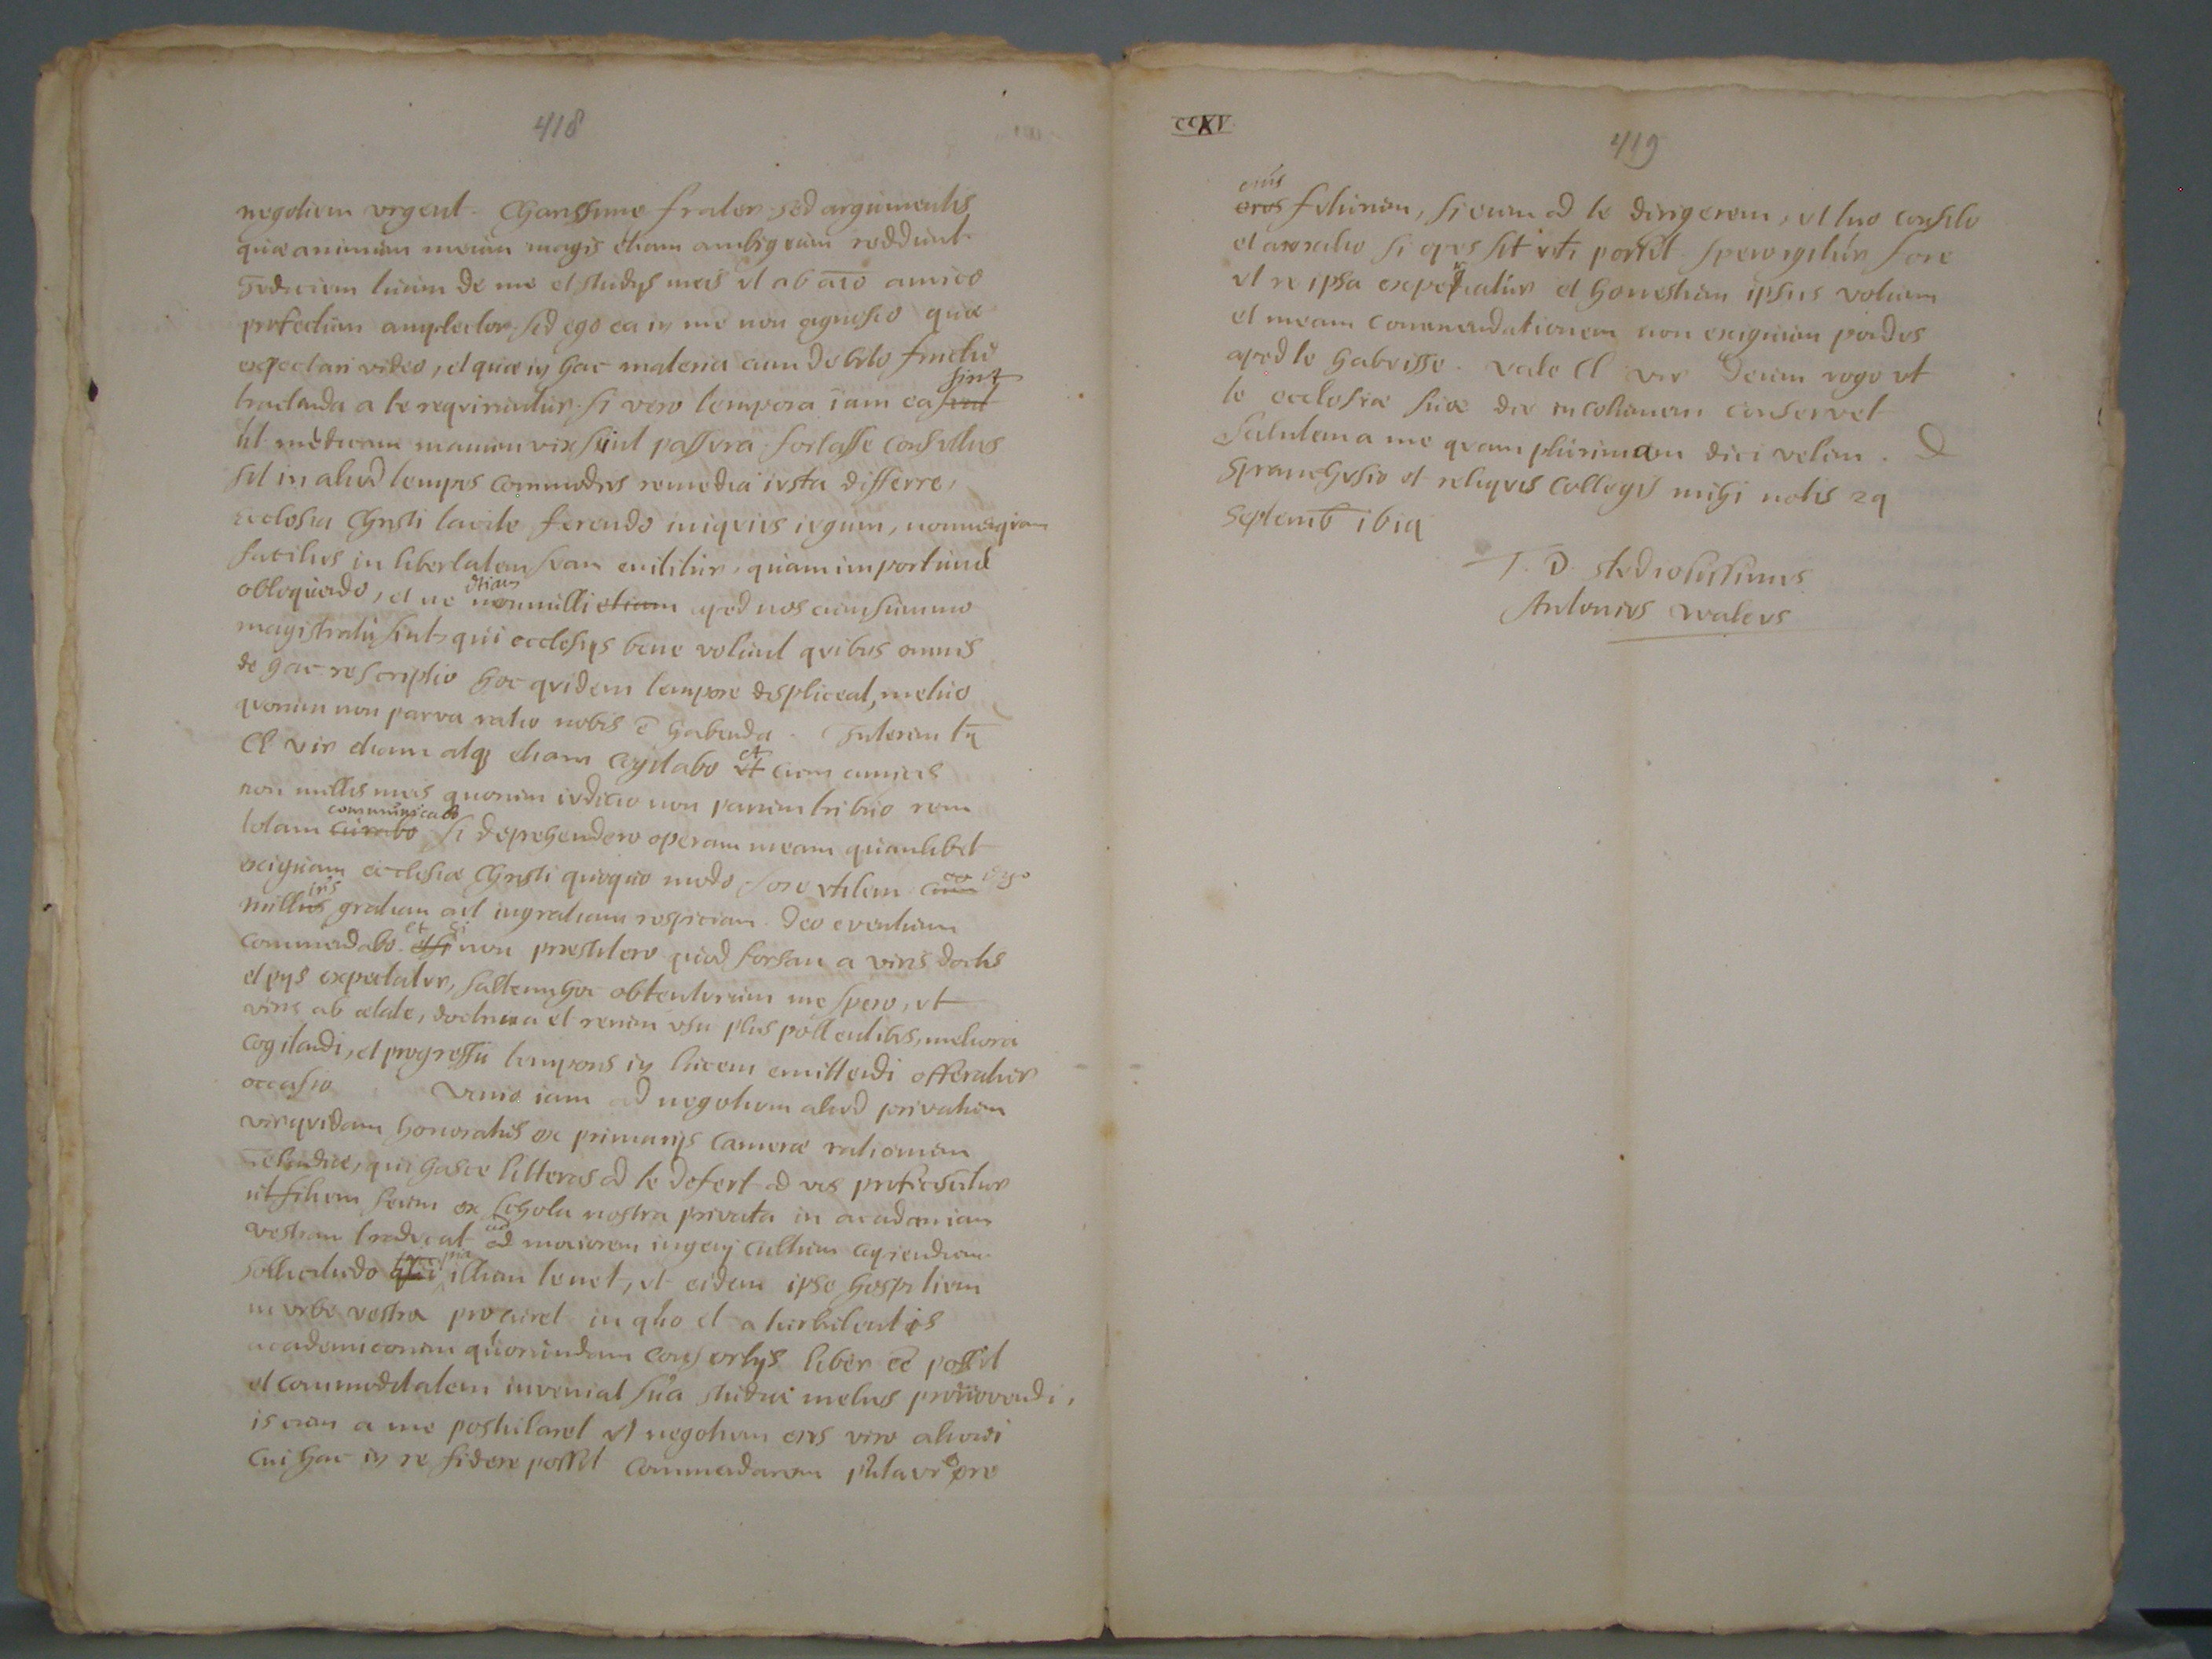 418
negotium urgent. Charissime frater sed argumentis
quae animum meum magis etiam ambiguum reddunt
Judicium tuum de me et studijs meis ut ab aīo amico
profectum amplector. sed ego ea in me non agnosco quae
expectari video, et quae in hac materia cum debito fructu
sint
tractanda a te requiruntur. si vero tempora iam ea sunt
ut medicam manum vix sint passura. fortasse consultius
sit in aliud tempus commodius remedia iusta differre,
ecclesia Christi tacite ferendo iniquius iugum, nonnunquam
facilius in libertatem suam enititur, quam importune
etiam
obloquendo, et ne nonnulli etiam apud nos cum summo
magistratu sint qui ecclesijs bene volunt quibus omnis
de hac re scriptio hoc quidem tempore displiceat, metuo
quorum non parva ratio nobis ē habenda. Interim tn̄
et
Cl vir etiam atq; etiam cogitabo ut cum amicis
non nullis meis quorum iudicio non parum tribuo rem
communicabo
totam curabo si deprehendero operam meam quamlibet
exiguam ecclesiae Christi quoquo modo fore utilem ego
ius
nullius gratiam aut ingratiam respiciam. Deo eventum
et si
commendabo. etsi non praestitero quod forsan a viris doctis
et pijs expectatur, saltem hoc obtenturum me spero, ut
viris ab aetate, doctrina et rerum usu plus pollentibus, meliora
cogitandi, et progressu temporis in lucem emittendi offeratur
occasio Venio iam ad negotium aliud privatum
vir quidam honoratus ex primarijs Camerae rationum
Zelandiae, qui hasce litteras ad te defert ad vos proficiscitur
ut filium suum ex schola nostra privata in academiam
ad
vestram traducat ad maiorem ingenij cultum capiendum
pia
sollicitudo illum tenet, ut eidem ipse hospitium
in urbe vestra procuret in quo et a turbulentis
academicorum quorundam consortijs liber ēē possit
et commoditatem inveniat sua studia melius promovendi,
is cum a me postularet ut negotium eius viro alicui
cui hac in re fidere possit commendarem putavi ore
CCXV
419
eius
eros futurum, si eum ad te dirigerem, ut tuo consilio
et auxilio si opus sit uti possit. spero igitur fore
ut re ipsa experiatur et honestum ipsius votum
et meam commendationem non exiguum pondus
apud te habuisse. Vale Cl vir Deum rogo ut
te ecclesiae suae diu incolumem conservet
Salutem a me quam plurimam dici velim. D
Spranchusio et reliquis collegis mihi notis 29
Septemb 1619
T. D. studiosissimus
Antonius Waleus